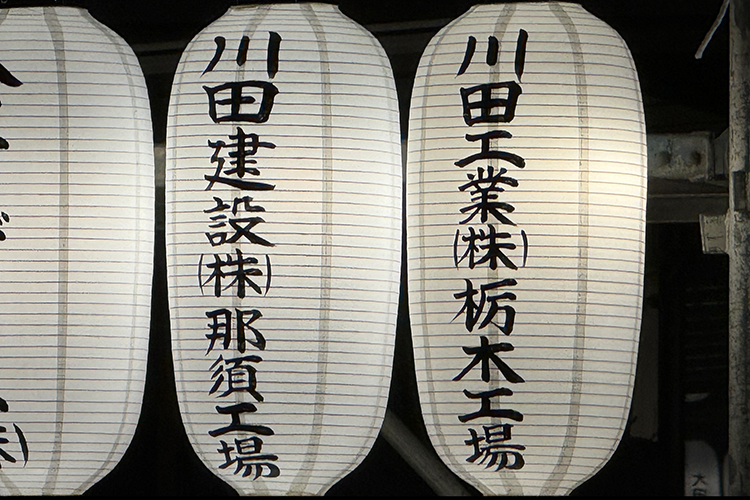 川田工業(株)栃木工場
川田建設(株)那須工場